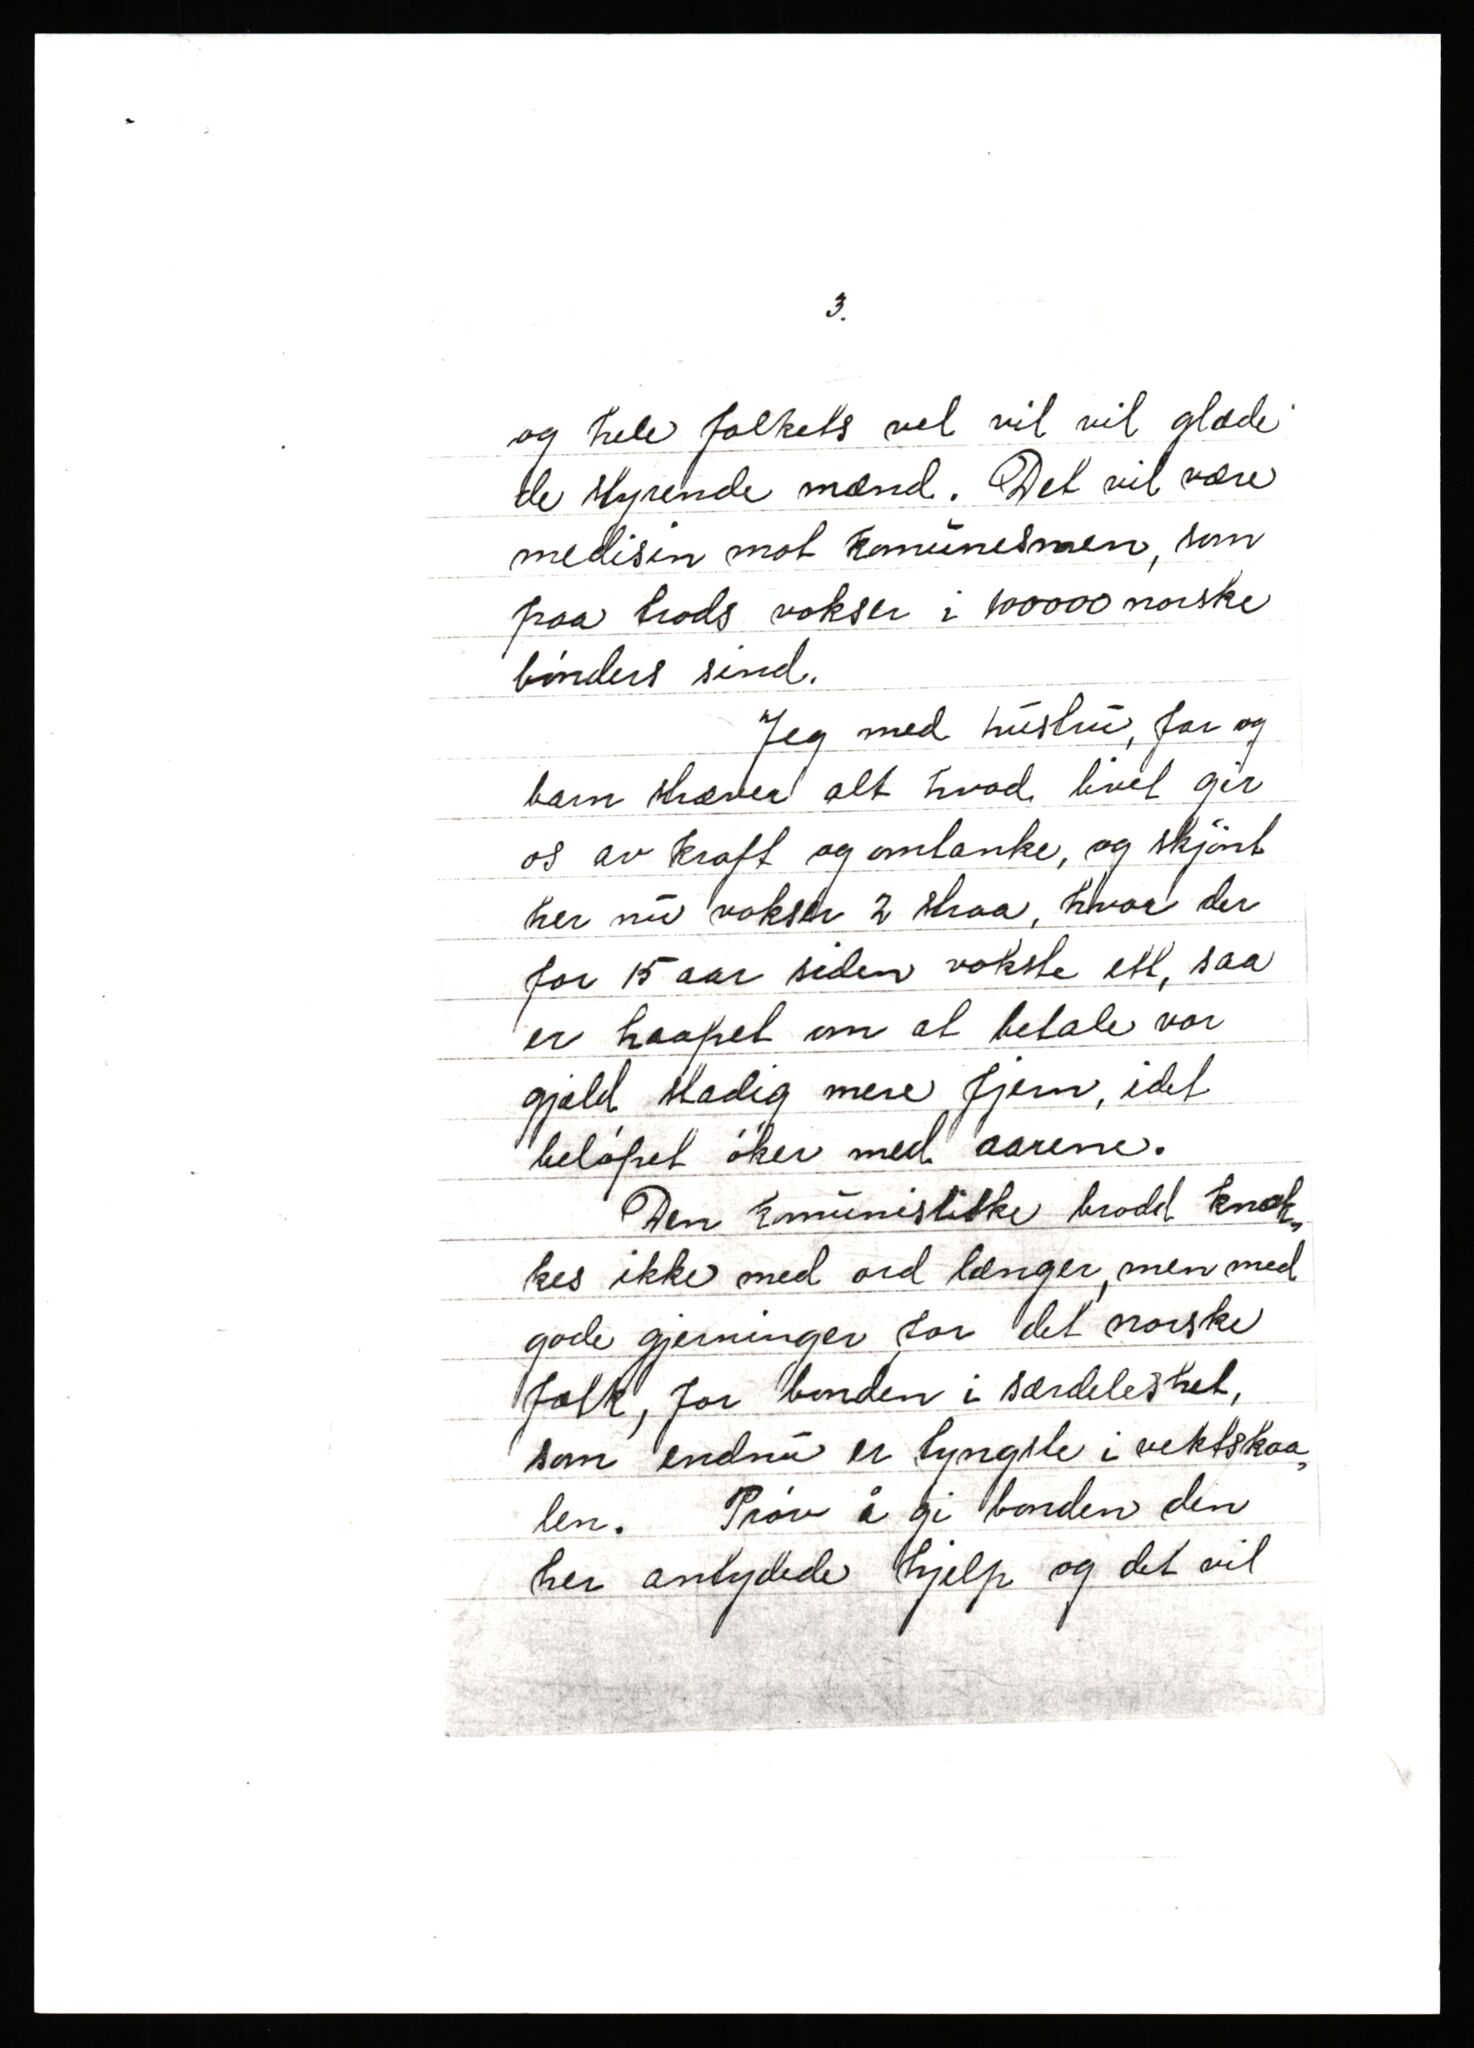 3.
og hele folkets vel vil vil glæde
de styrende mænd. Det vil være
medisin mot komunesmen, som
paa trods vokser i 100000 norske
bönders sind.
Jeg med hustru, far og
barn stræver alt hvad livet gir
os av kraft og omtanke, og skjönt
her nu vokser 2 straa, hvor der
for 15 aar siden vokste ett, saa
er haapet om at betale vor
gjæld stadig mere fjern, idet
belöpet öker med aarene.
Den komunistiske brodd knæk-
kes ikke med ord længer, men med
gode gjerninger for det norske
folk, for bonden i særdeleshet,
som endnu er tyngste i vektskaa-
len. Pröv å gi bonden den
her antydede hjelp og det vil